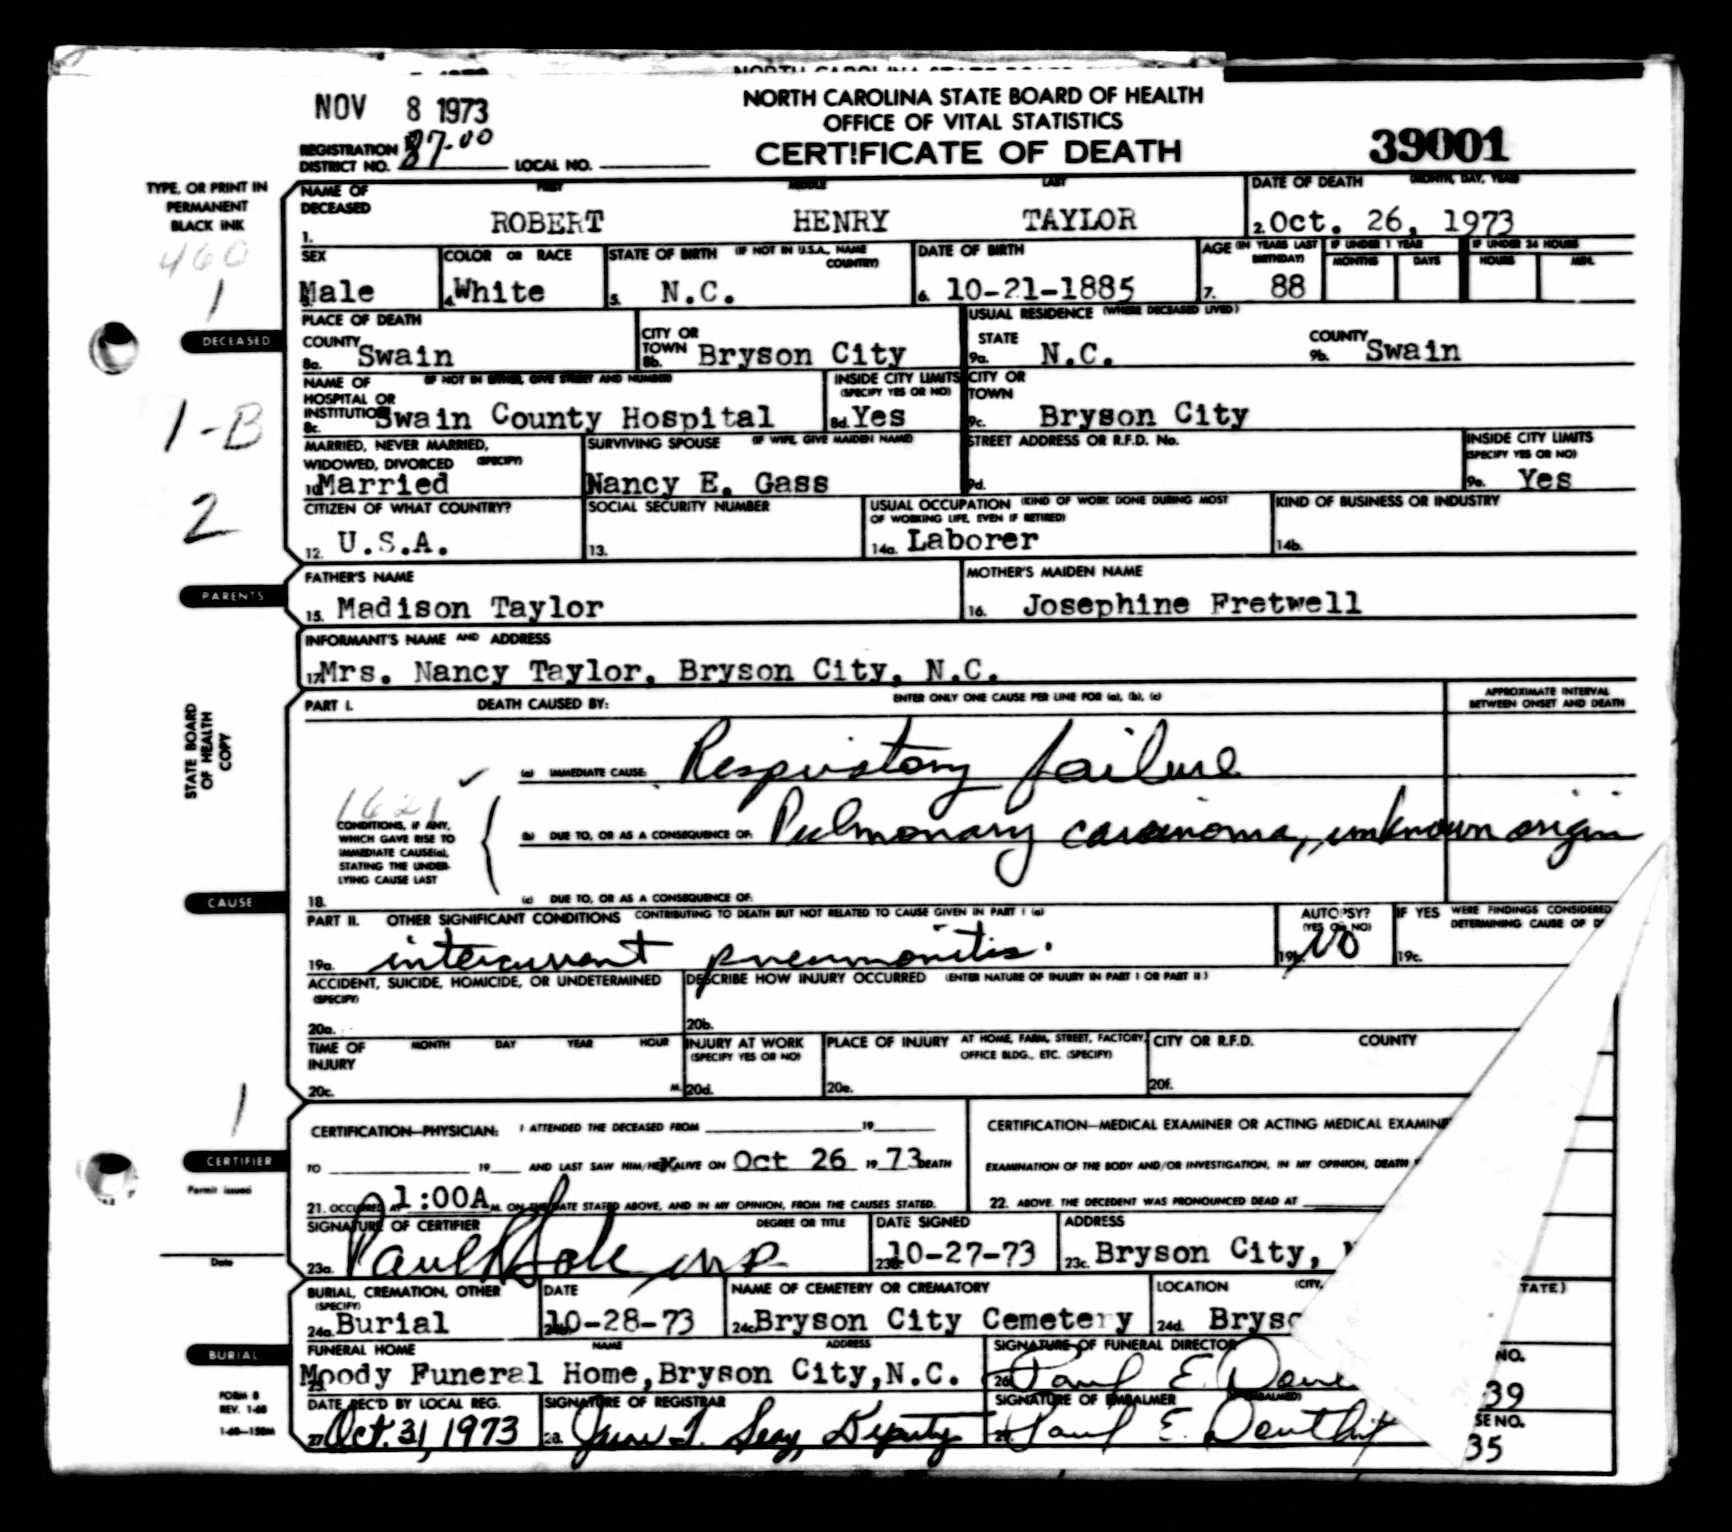 NOV 8 1973
NORTH CAROLINA STATE BOARD OF HEALTH
OFFICE OF VITAL STATISTICS
CERTIFICATE OF DEATH
39001
REGISTRATION DISTRICT NO. 87-00 LOCAL NO.
TYPE, OR PRINT IN PERMANENT BLACK INK
460
1
1-B
2
NAME OF DECEASED FIRST MIDDLE LAST DATE OF DEATH (MONTH, DAY, YEAR)
1. ROBERT HENRY TAYLOR 2. Oct. 26, 1973
SEX COLOR OR RACE STATE OF BIRTH (IF NOT IN U.S.A., NAME COUNTRY) DATE OF BIRTH AGE (IN YEARS LAST BIRTHDAY) IF UNDER 1 YEAR MONTHS DAYS IF UNDER 24 HOURS HOURS MIN.
3. Male 4. White 5. N.C. 6. 10-21-1885 7. 88
DECEASED
PLACE OF DEATH USUAL RESIDENCE (WHERE DECEASED LIVED)
COUNTY 8a. Swain CITY OR TOWN 8b. Bryson City STATE 9a. N.C. COUNTY 9b. Swain
NAME OF HOSPITAL OR INSTITUTION (IF NOT IN EITHER, GIVE STREET AND NUMBER) INSIDE CITY LIMITS (SPECIFY YES OR NO) CITY OR TOWN
8c. Swain County Hospital 8d. Yes 9c. Bryson City
MARRIED, NEVER MARRIED, WIDOWED, DIVORCED (SPECIFY) SURVIVING SPOUSE (IF WIFE, GIVE MAIDEN NAME) STREET ADDRESS OR R.F.D. No. INSIDE CITY LIMITS (SPECIFY YES OR NO)
10. Married Nancy E. Gass 9d. 9e. Yes
CITIZEN OF WHAT COUNTRY? SOCIAL SECURITY NUMBER USUAL OCCUPATION (KIND OF WORK DONE DURING MOST OF WORKING LIFE, EVEN IF RETIRED) KIND OF BUSINESS OR INDUSTRY
12. U.S.A. 13. 14a. Laborer 14b.
PARENTS
FATHER'S NAME MOTHER'S MAIDEN NAME
15. Madison Taylor 16. Josephine Fretwell
INFORMANT'S NAME AND ADDRESS
17. Mrs. Nancy Taylor, Bryson City, N.C.
STATE BOARD OF HEALTH COPY
PART I. DEATH CAUSED BY: ENTER ONLY ONE CAUSE PER LINE FOR (a), (b), (c) APPROXIMATE INTERVAL BETWEEN ONSET AND DEATH
(a) IMMEDIATE CAUSE: Respiratory failure
1621
CONDITIONS, IF ANY, WHICH GAVE RISE TO IMMEDIATE CAUSE(a), STATING THE UNDERLYING CAUSE LAST
(b) DUE TO, OR AS A CONSEQUENCE OF: Pulmonary carcinoma, unknown origin
CAUSE
18. (c) DUE TO, OR AS A CONSEQUENCE OF:
PART II. OTHER SIGNIFICANT CONDITIONS CONTRIBUTING TO DEATH BUT NOT RELATED TO CAUSE GIVEN IN PART I (a) AUTOPSY? (YES OR NO) IF YES WERE FINDINGS CONSIDERED DETERMINING CAUSE OF D
19a. intercurrent pneumonitis. 19b. No 19c.
ACCIDENT, SUICIDE, HOMICIDE, OR UNDETERMINED (SPECIFY) DESCRIBE HOW INJURY OCCURRED (ENTER NATURE OF INJURY IN PART I OR PART II)
20a. 20b.
TIME OF INJURY MONTH DAY YEAR HOUR INJURY AT WORK (SPECIFY YES OR NO) PLACE OF INJURY AT HOME, FARM, STREET, FACTORY, OFFICE BLDG., ETC. (SPECIFY) CITY OR R.F.D. COUNTY
20c. M. 20d. 20e. 20f.
1
CERTIFICATION—PHYSICIAN: I ATTENDED THE DECEASED FROM 19 CERTIFICATION—MEDICAL EXAMINER OR ACTING MEDICAL EXAMINE
CERTIFIER
TO 19 AND LAST SAW HIM/HER ALIVE ON Oct 26 19 73 DEATH EXAMINATION OF THE BODY AND/OR INVESTIGATION, IN MY OPINION, DEATH
Permit issued
21. OCCURRED AT 1:00A M. ON THE DATE STATED ABOVE, AND IN MY OPINION, FROM THE CAUSES STATED. 22. ABOVE. THE DECEDENT WAS PRONOUNCED DEAD AT
SIGNATURE OF CERTIFIER DEGREE OR TITLE DATE SIGNED ADDRESS
23a. Paul MD 23b. 10-27-73 23c. Bryson City,
Date
BURIAL, CREMATION, OTHER (SPECIFY) DATE NAME OF CEMETERY OR CREMATORY LOCATION (CITY, TATE)
24a. Burial 24b. 10-28-73 24c. Bryson City Cemetery 24d. Brys
BURIAL
FUNERAL HOME NAME ADDRESS SIGNATURE OF FUNERAL DIRECTOR NO.
25. Moody Funeral Home, Bryson City, N.C. 26. Paul E. 39
FORM 8
REV. 1-68
1-68—150M
DATE REC'D BY LOCAL REG. SIGNATURE OF REGISTRAR SIGNATURE OF EMBALMER SE NO.
27. Oct. 31, 1973 28. Deputy Paul E. 35